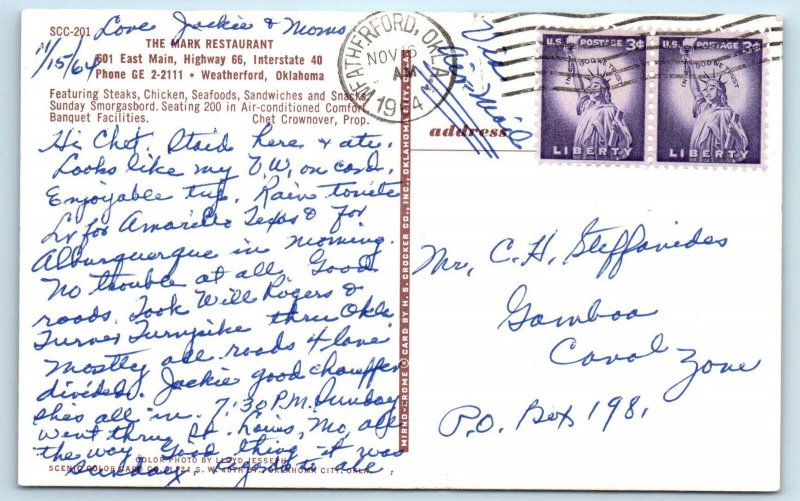 SCC-201 Love Jackie & Moms
11/15/64
THE MARK RESTAURANT
601 East Main, Highway 66, Interstate 40
Phone GE 2-2111 • Weatherford, Oklahoma
Featuring Steaks, Chicken, Seafoods, Sandwiches and Snacks
Sunday Smorgasbord. Seating 200 in Air-conditioned Comfort
Banquet Facilities. Chet Crownover, Prop.
Hi Chet. Staid here & ate.
Looks like my V.W. on card.
Enjoyable trip. Rain tonite
Lv for Amarillo Texas & for
Alburquerque in morning.
No trouble at all. Good
roads. Took Will Rogers &
Turner Turnpike thru Okla
Mostly all roads 4 lane
divided. Jackie good chauffer
shes all in. 7:30 P.M. Sunday
went thru St. Louis, Mo, all
the way. Good thing it was
Sunday.
COLOR PHOTO BY LLOYD JESSEPH
SCENIC COLOR CARD CO. S. W. 40TH ST. OKLAHOMA CITY, OKLA.
MIRRO-KROME ® CARD BY H. S. CROCKER CO., INC. OKLAHOMA CITY, U.S.A.
WEATHERFORD, OKLA.
NOV 16
AM
Via
Air Mail
address
U.S. POSTAGE 3¢
IN GOD WE TRUST
LIBERTY
U.S. POSTAGE 3¢
IN GOD WE TRUST
LIBERTY
Mr. C. H. Steffanides
Gamboa
Canal Zone
P.O. Box 198,